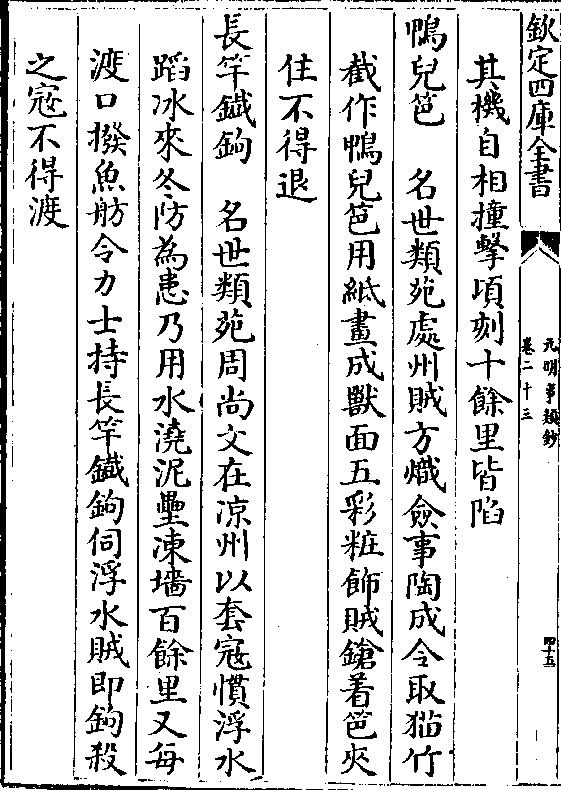 欽定四庫全書
元明事類鈔
卷二十三
四十五
其機自相撞擊頃刻十餘里皆陷
鴨兒笆　名世類苑處州賊方熾僉事陶成令取猫竹
截作鴨兒笆用紙畫成獸面五彩粧飾賊鎗着笆夾
住不得退
長竿鐵鉤　名世類苑周尚文在凉州以套寇慣浮水
蹈冰來冬防為患乃用水澆泥壘凍墻百餘里又每
渡口撥魚舫令力士持長竿鐵鉤伺浮水賊即鉤殺
之寇不得渡